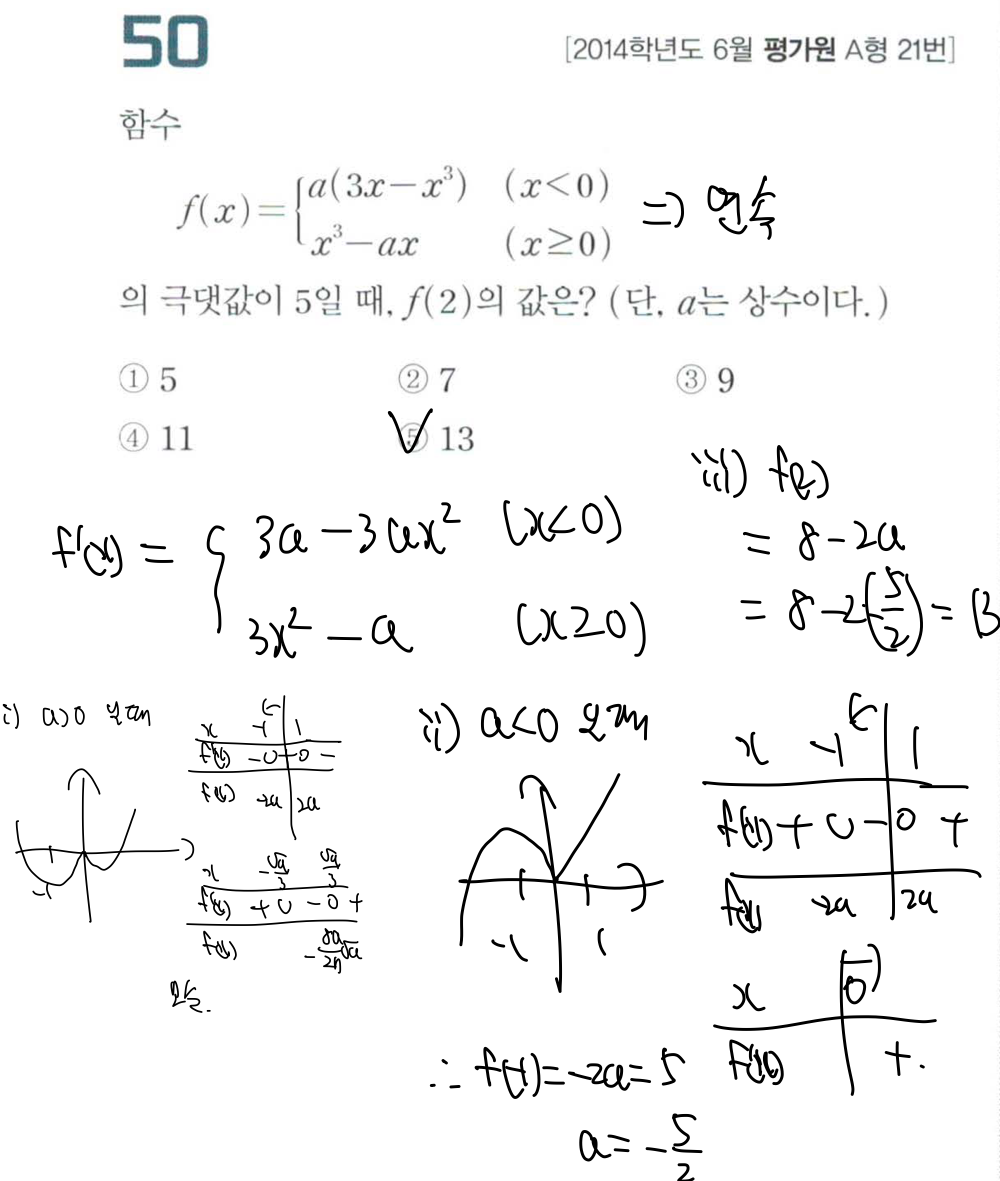 50
[2014학년도 6월 평가원 A형 21번]
함수
f(x)={a(3x-x³) (x<0)
x³-ax (x≥0)
⇒ 연속
의 극댓값이 5일 때, f(2)의 값은? (단, a는 상수이다.)
① 5 ② 7 ③ 9
④ 11 ⑤ 13
f'(x) = { 3a-3ax² (x<0)
3x²-a (x≥0)
iii) f(2)
= 8-2a
= 8-2(-5/2) = 13
i) a>0 일 때
x -1 1
f'(x) - 0 + 0 -
f(x) -2a 2a
-1
x -√a/3 √a/3
f'(x) + 0 - 0 +
f(x)
모순.
ii) a<0 일 때
-1 1
x -1 1
f'(x) + 0 - 0 +
f(x) -2a 2a
x 0
f'(x) +.
∴ f(-1)=-2a=5
a=-5/2